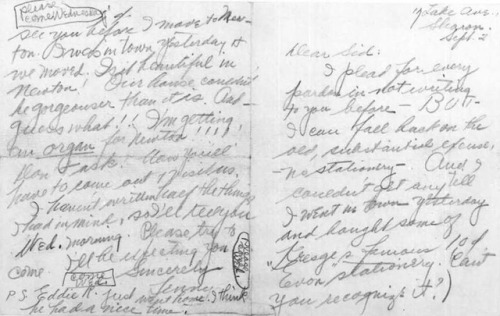 17 Lake Ave.
Sharon.
Sept. 2
Dear Sid:
I plead for every
pardon in not writing
to you before — BUT —
I can fall back on the
old, substantial excuse,
- no stationery - And I
couldn't get any till
I went in town yesterday
and bought some of
"Kresge's famous 10¢
Even" stationery. (Can't
You recognize it?)
Please
come Wednesday!
see you before I move to New-
ton. I was in town yesterday &
we moved. Is it beautiful in
Newton! Our house couldn't
be gorgeouser than it is. And
guess what!! I'm getting
an organ for !!!!
Don't ask! Now you'll
have to come out,
I haven't written half the things
I had in mind, so I'll tell you
Wed. morning. Please try to
come I'll be expecting you
come
Wed.
Sincerely
P.S. Eddie R. just went home. I think
he had a nice time.